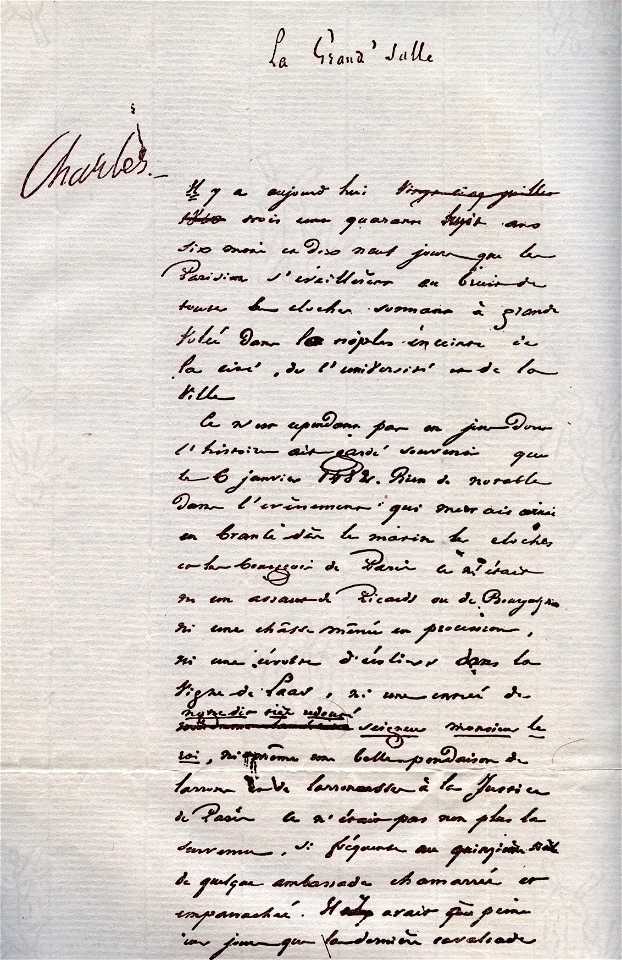 La Grand' Salle
Charles.
Il y a aujourd'hui vingt-cinq juillet
trois cent quarante huit ans
six mois et dix neuf jours que les
Parisiens s'éveillèrent au bruit de
toutes les cloches sonnant à grande
volée dans la triple enceinte de
la cité, de l'université et de la
ville
Ce n'est cependant pas un jour dont
l'histoire ait gardé souvenir que
le 6 janvier 1482. Rien de notable
dans l'évènement qui mettait ainsi
en branle dès le matin les cloches
et les bourgeois de Paris Ce n'était
ni un assaut de Picards ou de Bourguignons
ni une châsse menée en procession,
ni une révolte d'écoliers dans la
vigne de Laas, ni une entrée de
notre dit très redouté
seigneur monsieur le
roi, ni même une belle pendaison de
larrons et de larronnesses à la Justice
de Paris Ce n'était pas non plus la
survenue, si fréquente au quinzième siècle
de quelque ambassade chamarrée et
empanachée. Il y avait à peine
deux jours que la dernière cavalcade